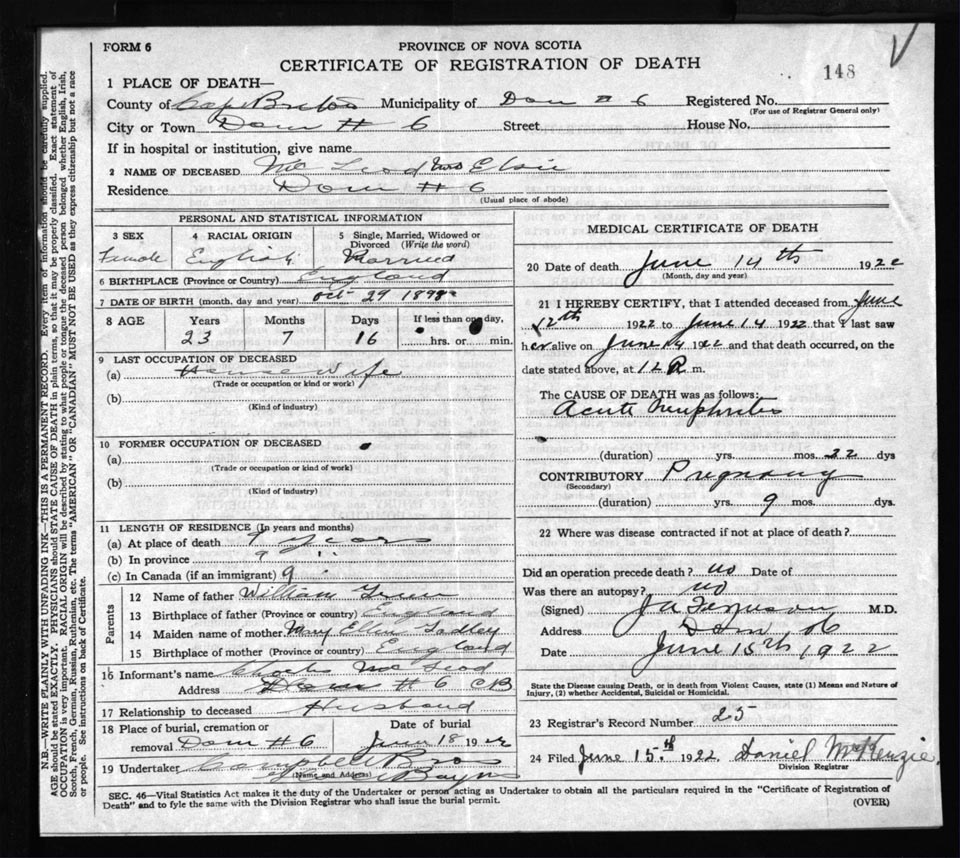 FORM 6
PROVINCE OF NOVA SCOTIA
CERTIFICATE OF REGISTRATION OF DEATH
148
1 PLACE OF DEATH—
County of Cape Breton Municipality of Dom # 6 Registered No.
(For use of Registrar General only)
City or Town Dom # 6 Street House No.
If in hospital or institution, give name
2 NAME OF DECEASED Mc Leod Mrs Elsie
Residence Dom # 6
(Usual place of abode)
PERSONAL AND STATISTICAL INFORMATION
3 SEX 4 RACIAL ORIGIN 5 Single, Married, Widowed or Divorced (Write the word)
Female English Married
6 BIRTHPLACE (Province or Country) England
7 DATE OF BIRTH (month, day and year) Oct 29 1898
8 AGE Years Months Days If less than one day,
23 7 16 hrs. or min.
9 LAST OCCUPATION OF DECEASED
(a) House Wife
(Trade or occupation or kind or work)
(b)
(Kind of industry)
10 FORMER OCCUPATION OF DECEASED
(a)
(Trade or occupation or kind of work)
(b)
(Kind of industry)
11 LENGTH OF RESIDENCE (In years and months)
(a) At place of death 9 years
(b) In province 9 "
(c) In Canada (if an immigrant) 9 "
Parents
12 Name of father William
13 Birthplace of father (Province or country) England
14 Maiden name of mother Mary Ellen
15 Birthplace of mother (Province or country) England
16 Informant's name Charles Mc Leod
Address Dom # 6 CB
17 Relationship to deceased Husband
18 Place of burial, cremation or removal Dom # 6 Date of burial June 18 1922
19 Undertaker Campbell Bros
(Name and Address)
MEDICAL CERTIFICATE OF DEATH
20 Date of death June 14 th 1922
(Month, day and year)
21 I HEREBY CERTIFY, that I attended deceased from June
12th 1922 to June 14 1922 that I last saw
her alive on June 14 1922 and that death occurred, on the
date stated above, at 12 P. m.
The CAUSE OF DEATH was as follows:
Acute Nemphrites
(duration) yrs. mos. 22 dys
CONTRIBUTORY Pregnancy
(Secondary)
(duration) yrs. 9 mos. dys.
22 Where was disease contracted if not at place of death?
Did an operation precede death? no Date of
Was there an autopsy? no
(Signed) J A Ferguson M.D.
Address Dom #6
Date June 15th 1922
State the Disease causing Death, or in death from Violent Causes, state (1) Means and Nature of
Injury, (2) whether Accidental, Suicidal or Homicidal.
23 Registrar's Record Number 25
24 Filed June 15th 1922 Daniel McKenzie.
Division Registrar
SEC. 46—Vital Statistics Act makes it the duty of the Undertaker or person acting as Undertaker to obtain all the particulars required in the "Certificate of Registration of
Death" and to fyle the same with the Division Registrar who shall issue the burial permit.
(OVER)
N.B.—WRITE PLAINLY WITH UNFADING INK—THIS IS A PERMANENT RECORD. Every item of information should be carefully supplied.
AGE should be stated EXACTLY. PHYSICIANS should STATE CAUSE OF DEATH in plain terms, so that it may be properly classified. Exact statement of
OCCUPATION is very important. RACIAL ORIGIN will be described by stating to what people or tongue the deceased person belonged, whether English, Irish,
Scotch, French, German, Russian, Ruthenian, etc. The terms "AMERICAN" OR "CANADIAN" MUST NOT BE USED as they express citizenship but not a race
or people. See instructions on back of Certificate.